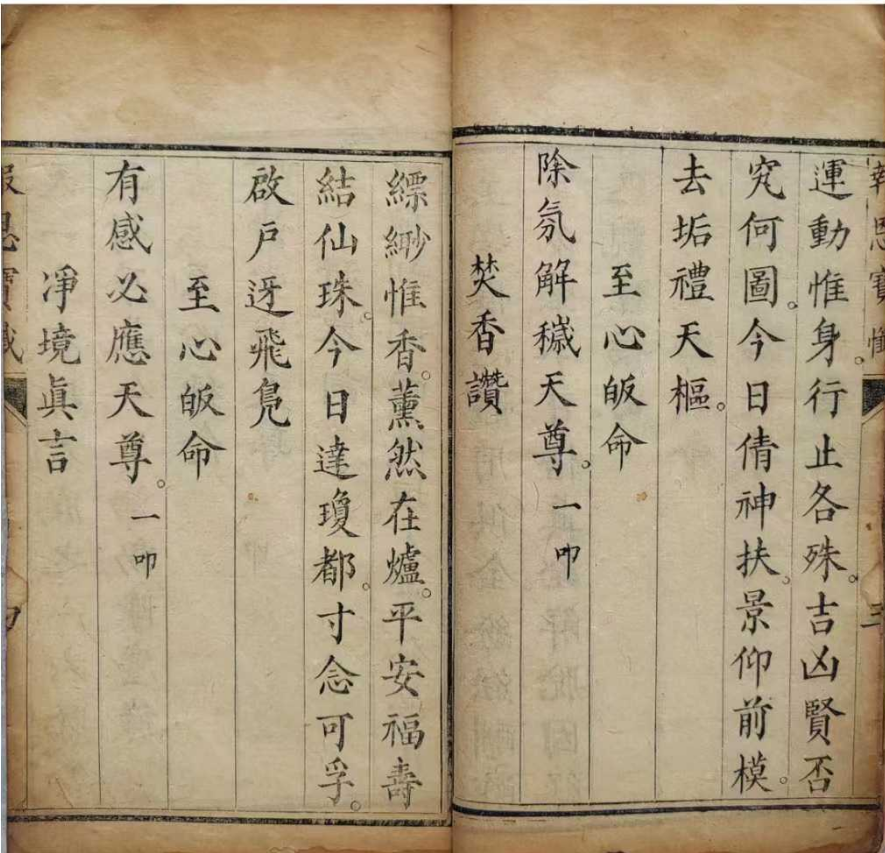 報恩寶懺
三
運動惟身。行止各殊。吉凶賢否
究何圖。今日倩神扶。景仰前模。
去垢禮天樞。
至心皈命
除氛解穢天尊。一叩
焚香讚
縹緲惟香。薰然在爐。平安福壽
結仙珠。今日達瓊都。寸念可孚。
啟戶迓飛鳧
至心皈命
有感必應天尊。一叩
淨境眞言
報恩寶懺